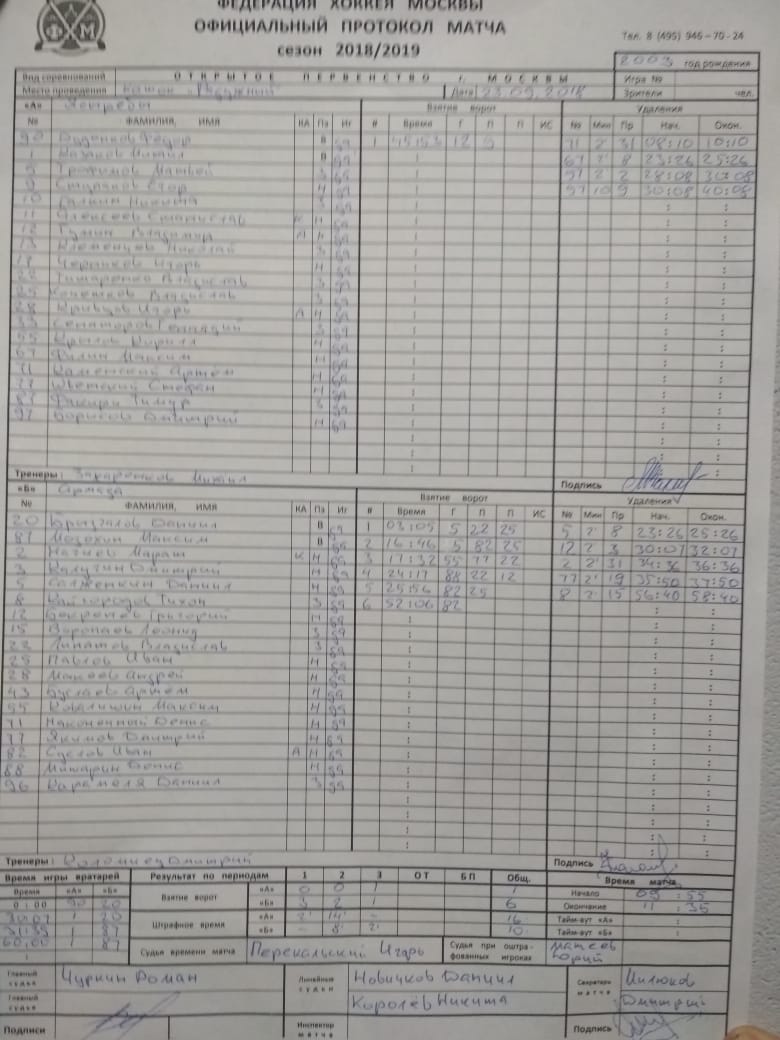 ФЕДЕРАЦИЯ ХОККЕЯ МОСКВЫ
ОФИЦИАЛЬНЫЙ ПРОТОКОЛ МАТЧА
сезон 2018/2019
Тел. 8 (495) 946-70-24
2003 год рождения
Вид соревнований ОТКРЫТОЕ ПЕРВЕНСТВО г. МОСКВЫ Игра №
Место проведения Каток Дата 23.09.2018 Зрители чел.
«А» Ястребы Взятие ворот Удаления
№ ФАМИЛИЯ, ИМЯ КА Пз Иг # Время Г П П ИС № Мин Пр Нач. Окон.
90 Федор В 1 45:53 12 9 71 2' 31 08:10 10:10
1 Казаков Михаил В 67 2' 8 23:26 25:26
5 Трофимов Матвей З 97 2 2 28:08 30:08
9 Егор Н 97 10 9 30:08 40:08
10 Галкин Никита З
11 Алексеев Станислав К Н
12 Владимир А Н
13 Клеменцов Николай З
17 Черников Игорь Н
22 Владислав З
25 Владислав З
28 Кривцов Игорь А Н
33 Сенаторов Геннадий З
55 Крылов Кирилл Н
67 Филин Максим Н
71 Каменский Артём Н
77 Цветский Стефан Н
87 Факири Тимур З
97 Борисов Дмитрий Н
Тренеры: Михаил Подпись
«Б» Армада Взятие ворот Удаления
№ ФАМИЛИЯ, ИМЯ КА Пз Иг # Время Г П П ИС № Мин Пр Нач. Окон.
20 Брызгалов Даниил В 1 03:05 5 22 25 5 2' 8 23:26 25:26
87 Мозохин Максим В 2 16:46 5 82 25 12 2' 3 30:07 32:07
2 Нагиев Марат К Н 3 17:32 55 77 22 2 2' 31 34:36 36:36
3 Калугин Дмитрий Н 4 24:17 88 22 12 77 2' 19 35:50 37:50
5 Салженкин Даниил Н 5 25:56 82 25 8 2' 15 56:40 58:40
8 Кайгородов Тихон З 6 52:06 82
12 Григорий Н
15 Воропаев Леонид З
22 Липатов Владислав З
25 Павлов Иван Н
28 Мокеев Андрей Н
43 Буслаев Артём Н
55 Ковалишин Максим Н
71 Наконечный Денис Н
77 Якимов Дмитрий Н
82 Суслов Иван А Н
88 Митарин Денис Н
96 Карамеля Даниил З
Тренеры: Коломиец Дмитрий Подпись
Время игры вратарей Результат по периодам 1 2 3 ОТ БП Общ. Время матча
Время «А» «Б» Взятие ворот «А» 0 0 1 1 Начало 09:55
0:00 90 20 «Б» 3 2 1 6 Окончание 11:35
30:07 1 20 Штрафное время «А» 2' 14' - 16 Тайм-аут «А»
31:39 1 87 «Б» - 8' 2' 10 Тайм-аут «Б»
60:00 1 87 Судья времени матча Перекальский Игорь Судья при оштрафованных игроках Матеев Юрий
Главный судья Чуркин Роман Линейные судьи Новичков Даниил Секретарь матча
Главный судья Королёв Никита Дмитрий
Подписи Инспектор матча Подпись